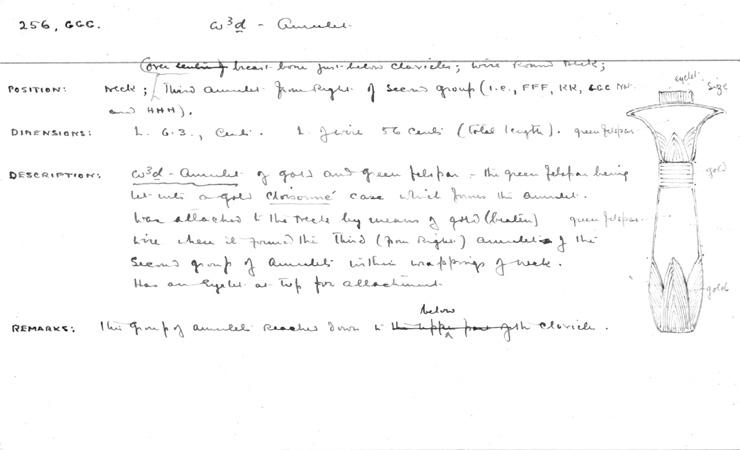 256, GGG.
w³ḏ - Amulet.
(Over centre of breast bone just below clavicles; wire round neck;
POSITION: Neck; Third amulet from Right of Second group (i.e., FFF, KK, GGG
and HHH).
DIMENSIONS: L. 6.3., Cent. L. of wire 56 cents (total length).
DESCRIPTION: w³ḏ - Amulet of gold and green felspar - the green felspar being
let into a gold cloisonné case which forms the amulet.
Was attached to the neck by means of gold (beaten)
wire where it formed the Third (from Right) amulet of the
Second group of Amulets within wrappings of neck.
Has an eyelet at top for attachment
REMARKS: This group of amulets reached down to the upper part of the below clavicle.
eyelet
Size
green felspar
gold
green felspar
gold